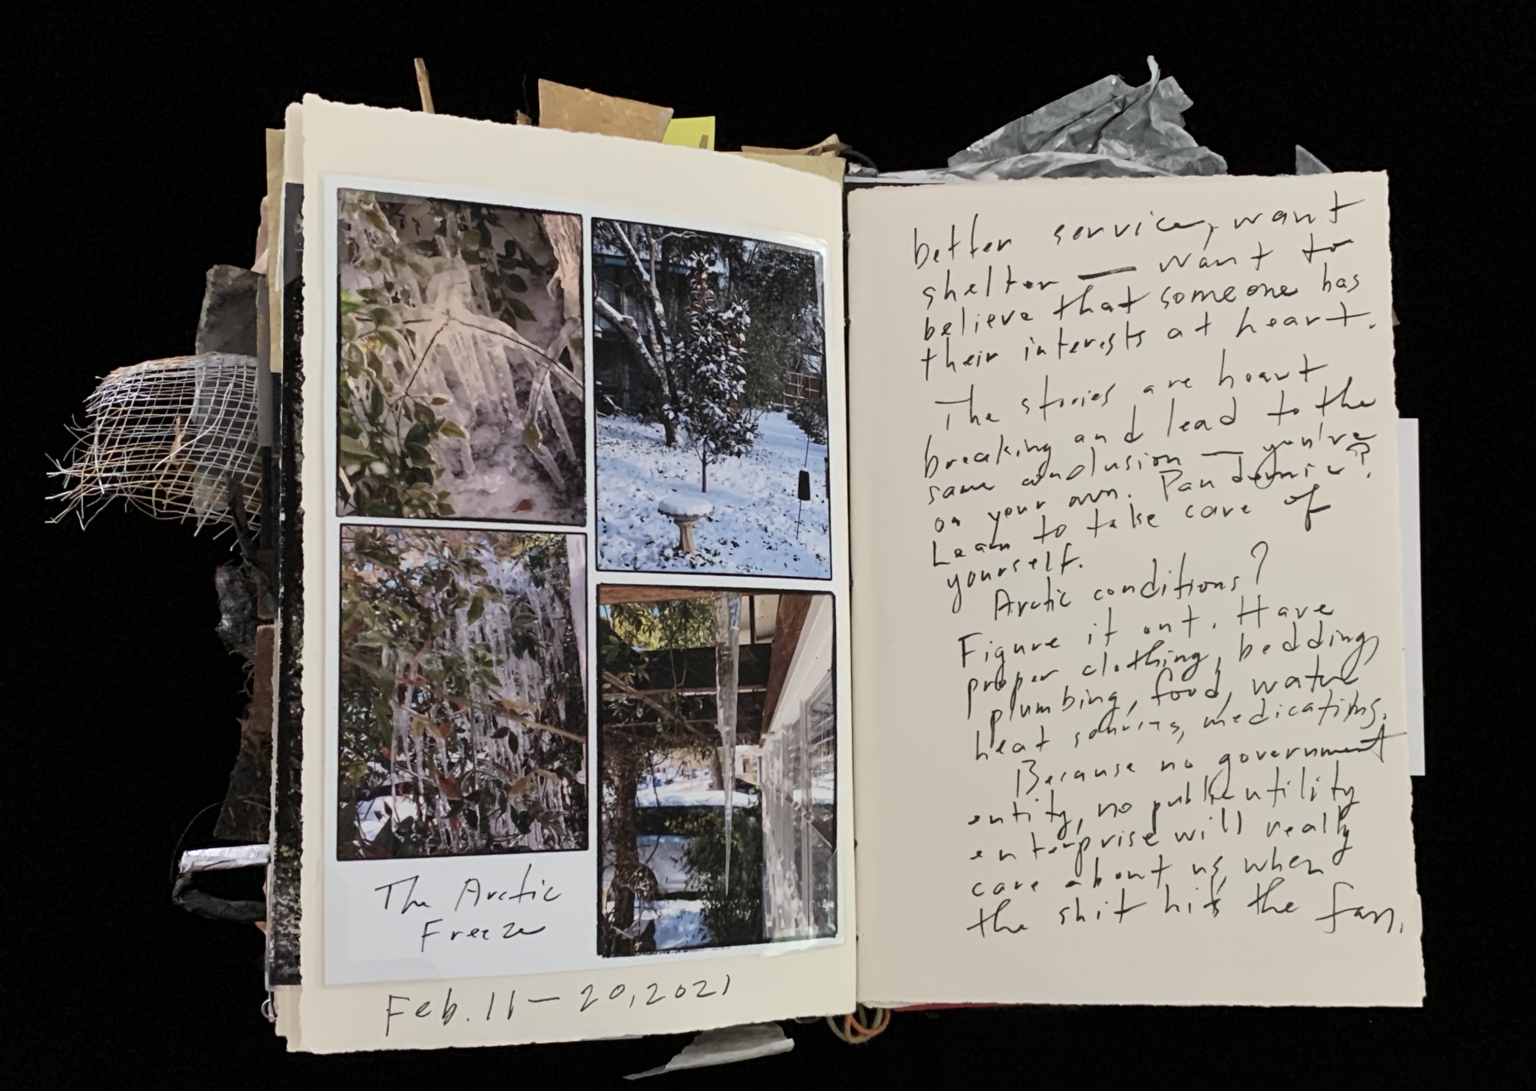 The Arctic
Freeze
Feb. 11 – 20, 2021
better service, want
shelter — want to
believe that someone has
their interests at heart.
The stories are heart
breaking and lead to the
same conclusion — you're
on your own. Pandemic?
Learn to take care of
yourself.
Arctic conditions?
Figure it out. Have
proper clothing, bedding,
plumbing, food, water
heat sources, medications.
Because no government
entity, no public utility
enterprise will really
care about us, when
the shit hits the fan.